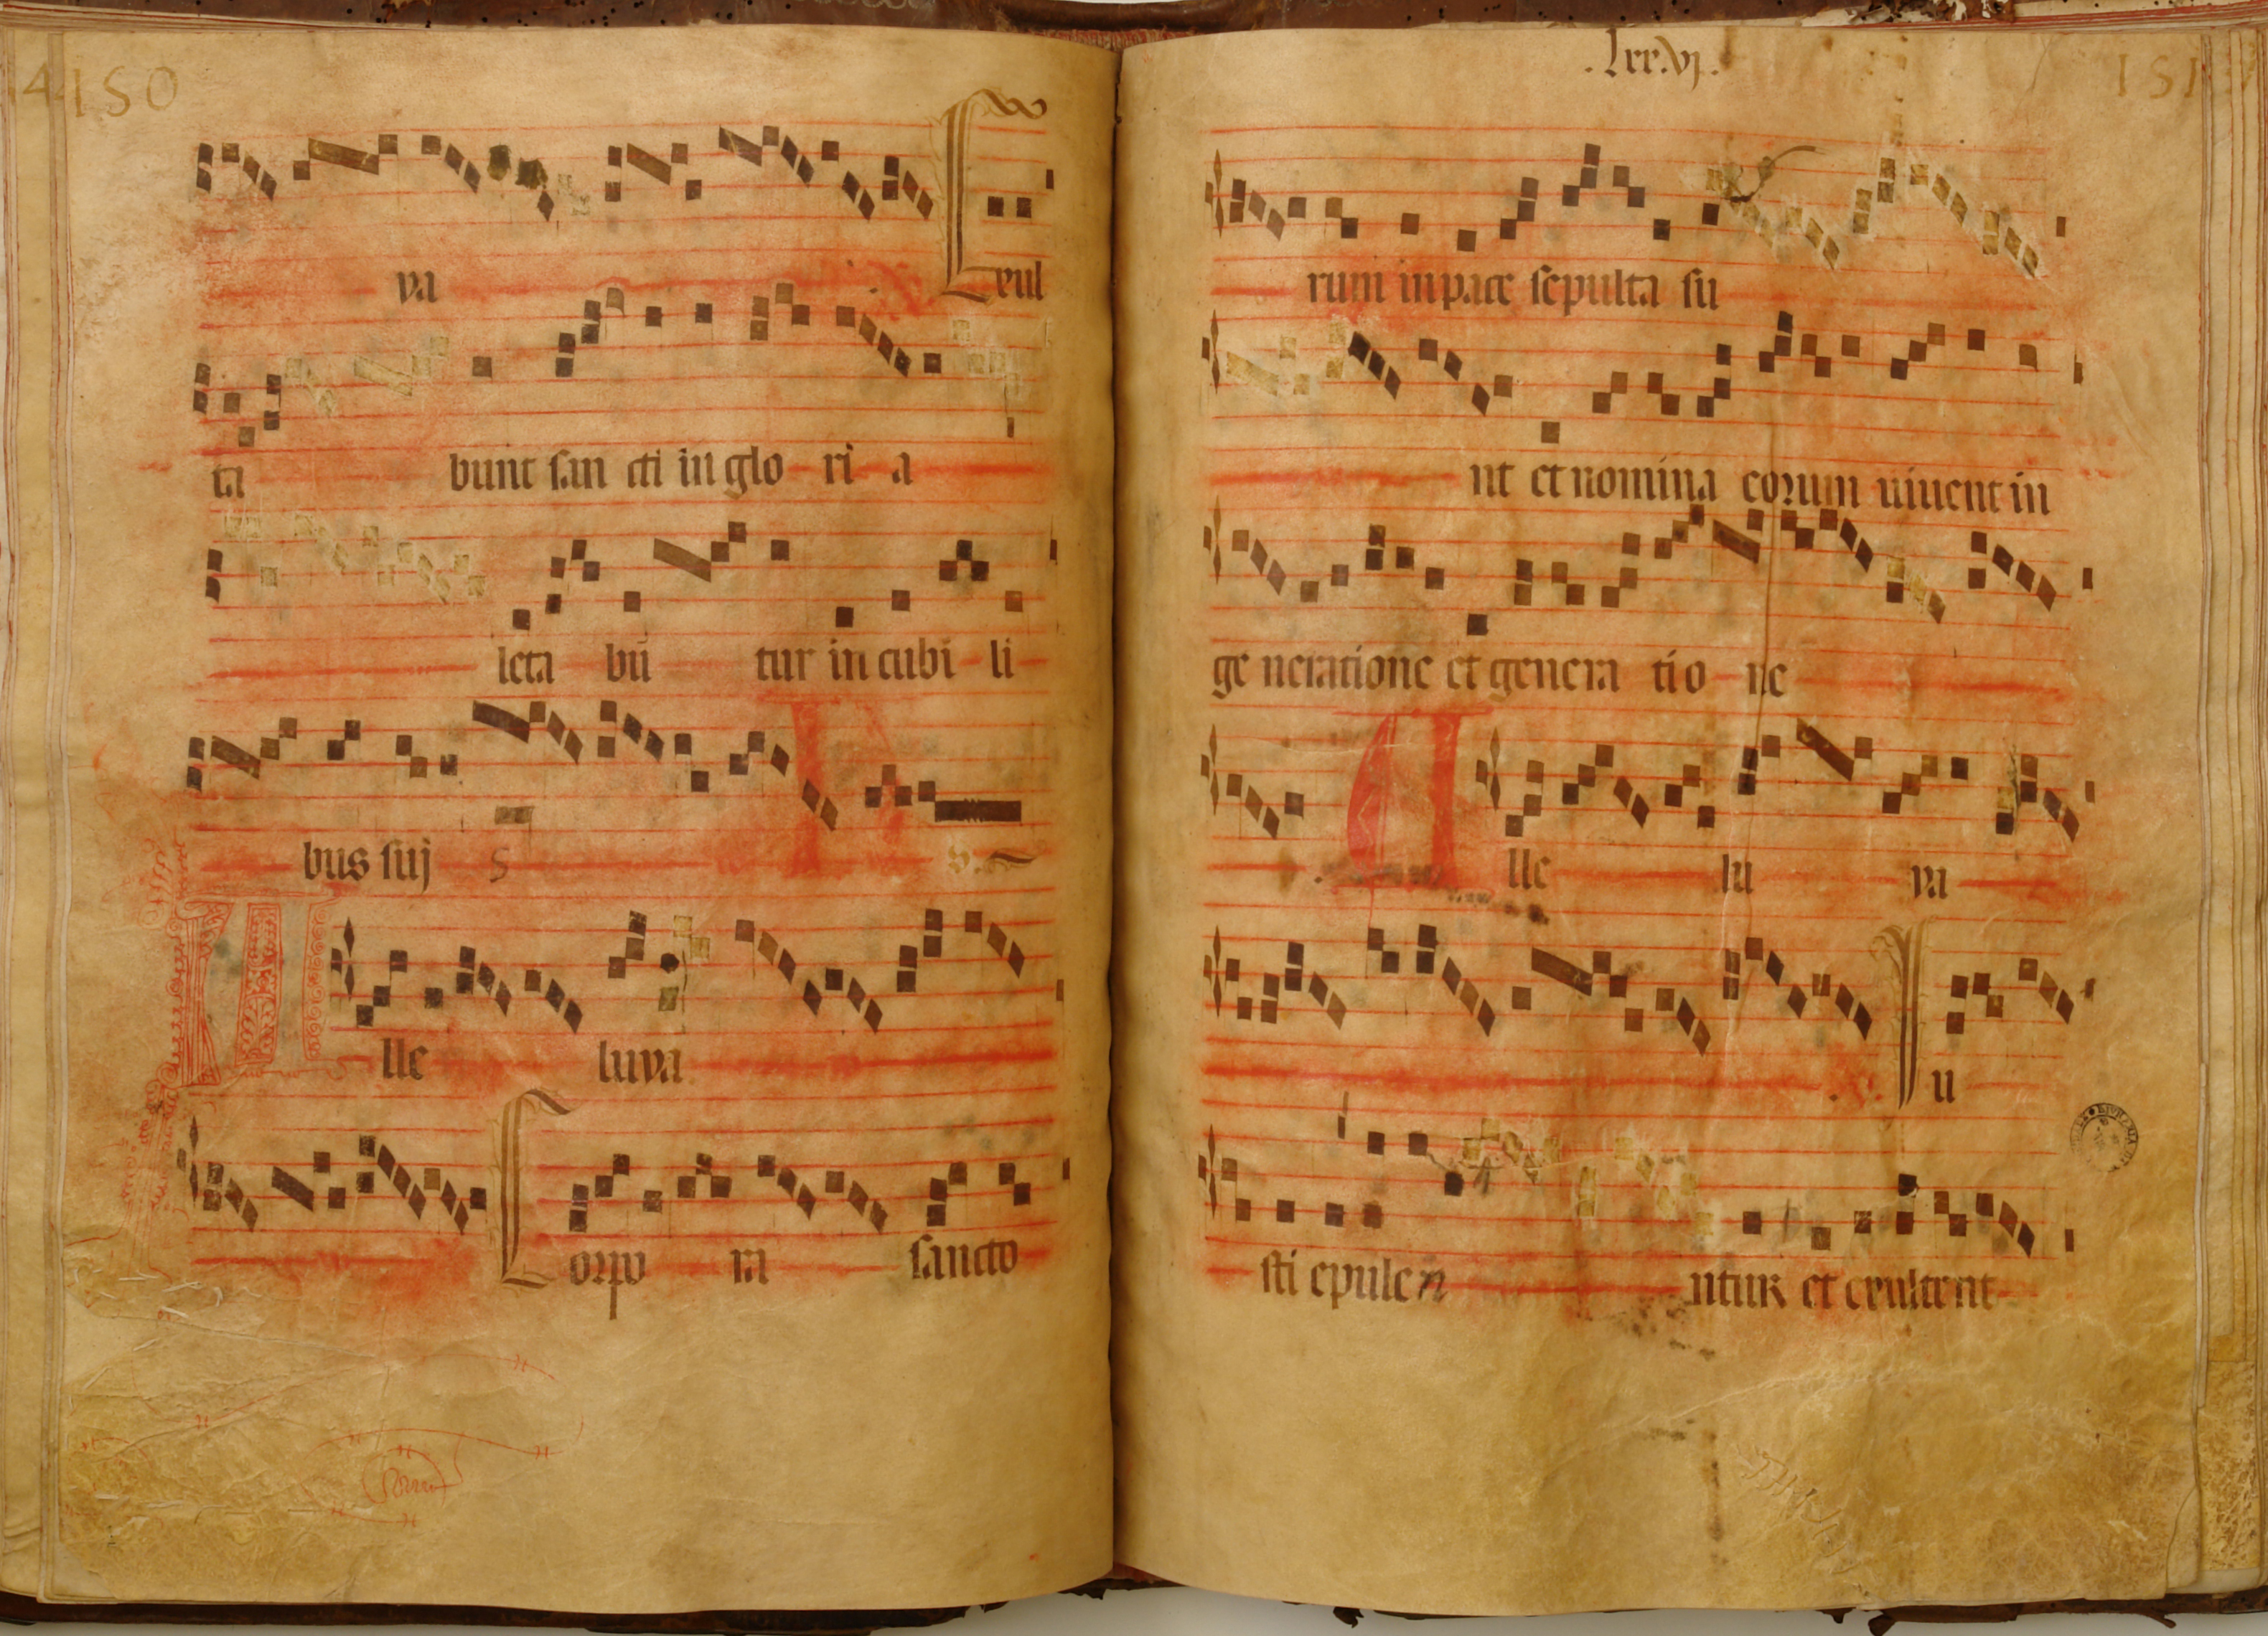 150
ya Exul
ta bunt san cti in glo ri a
leta bū tur in cubi li
bus suj s
A lle luya
Corpo ra sancto
.lxx.vj. 151
rum in pace sepulta su
nt et nomina eorum uiuent in
ge neratione et genera tio ne
A lle lu ya
Iu
sti epulen ntur et exultent